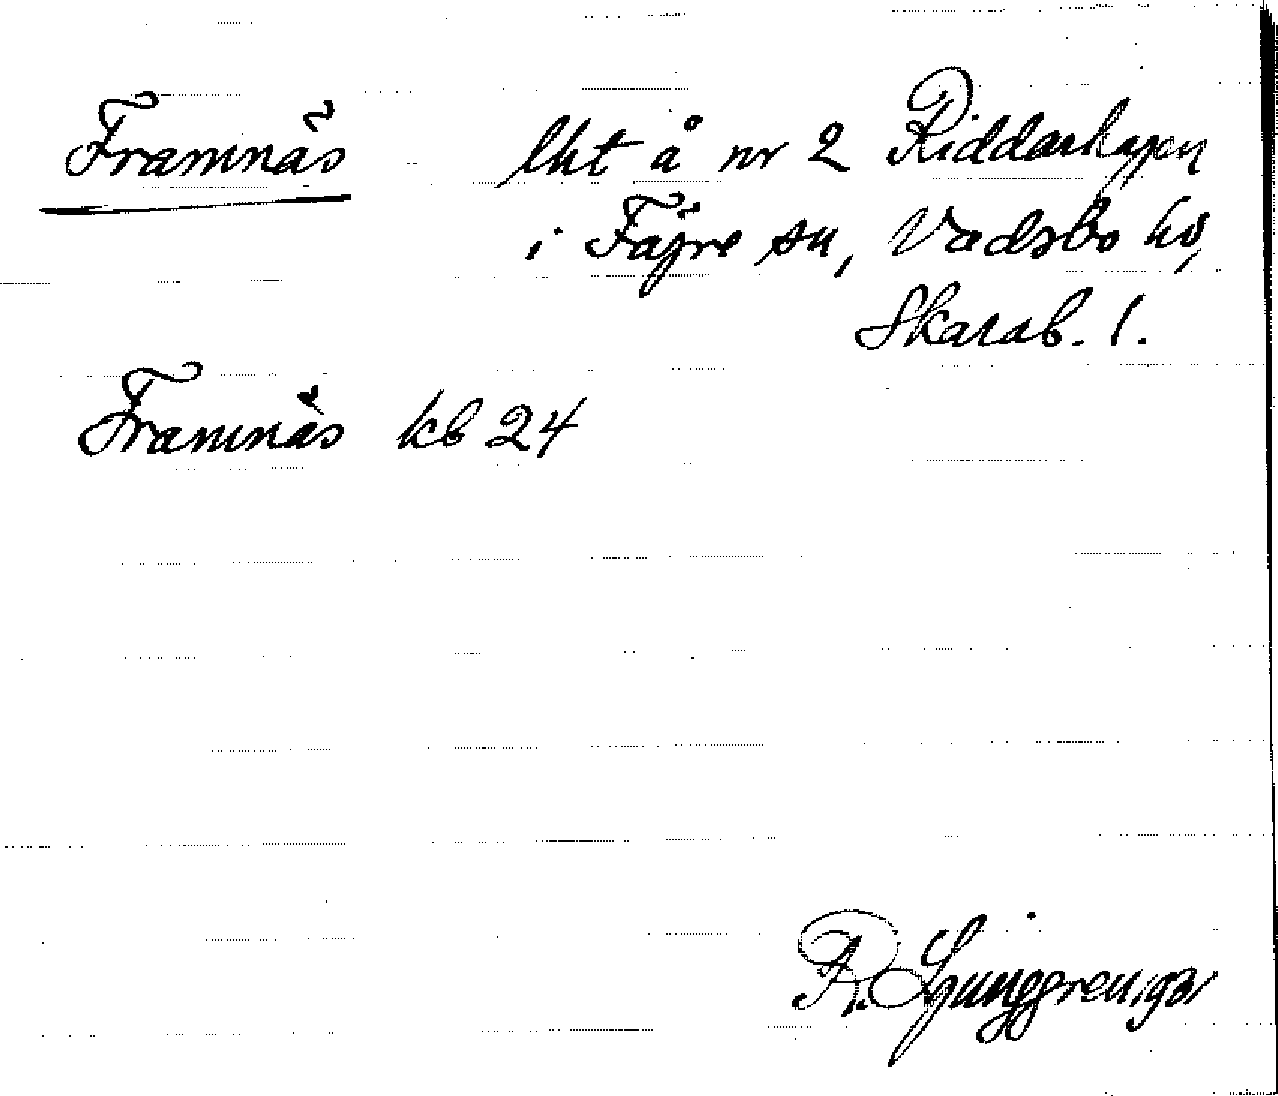 Framnäs lht å nr 2 Riddarhagen
i Fägre sn, Vadsbo hd,
Skarab. l.
Framnäs kb 24
R. Ljunggren 1931